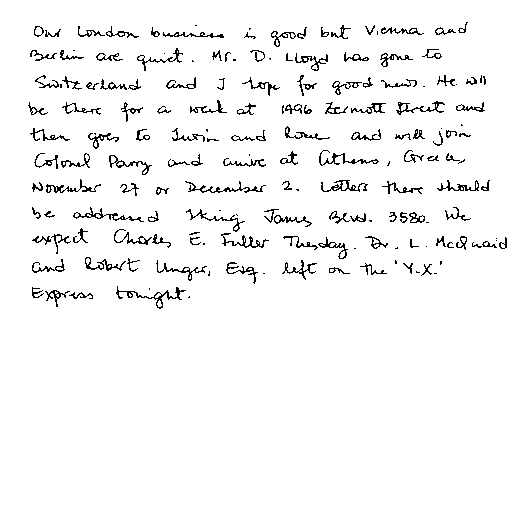 Our London business is good but Vienna and
Berlin are quiet. Mr. D. Lloyd has gone to
Switzerland and I hope for good news. He will
be there for a week at 1496 Zermott Street and
then goes to Turin and Rome and will join
Colonel Parry and arrive at Athens, Greece,
November 27 or December 2. Letters there should
be addressed King James Blvd. 3580. We
expect Charles E. Fuller Tuesday. Dr. L. McQuaid
and Robert Unger, Esq. left on the 'Y.X.'
Express tonight.